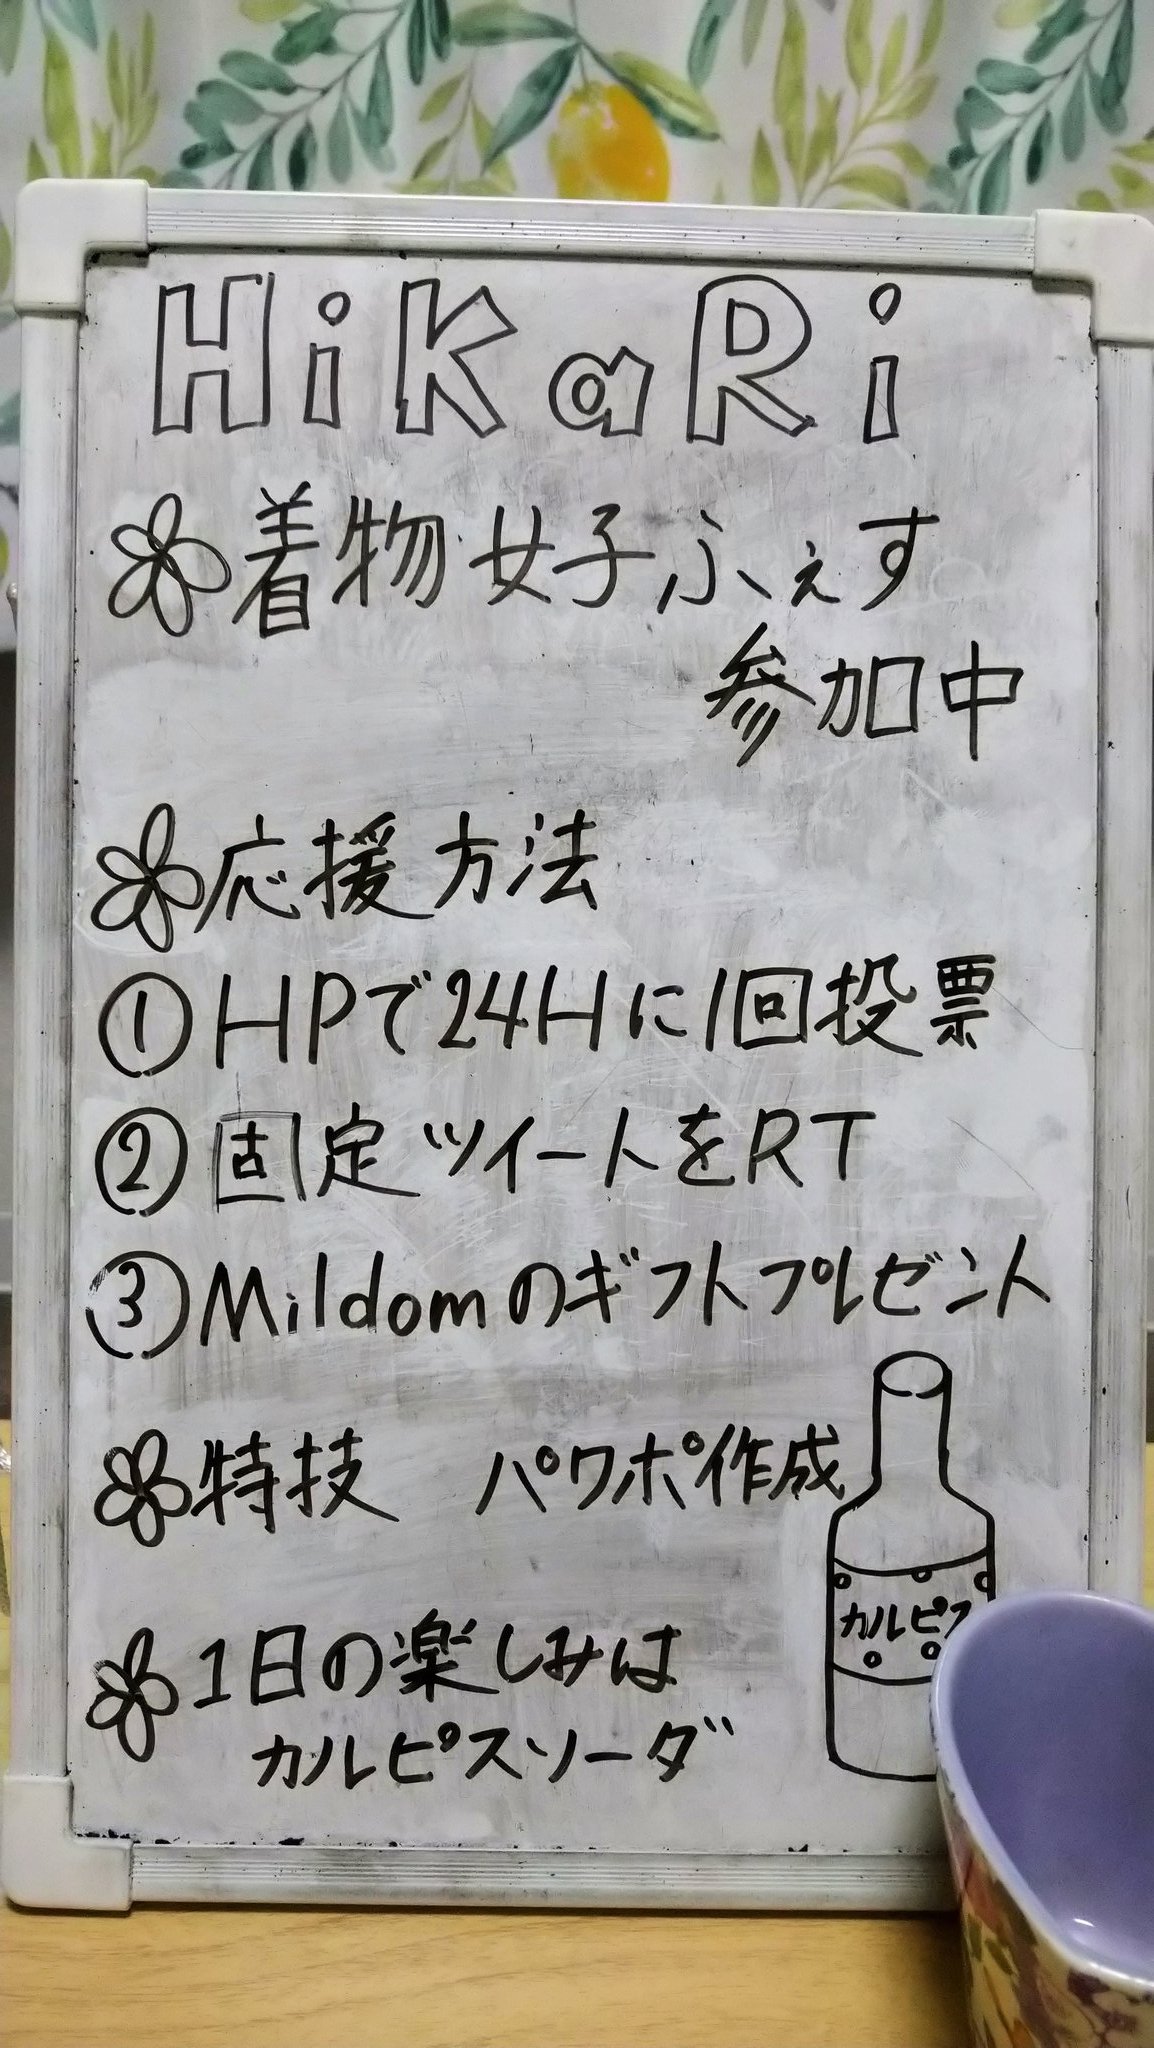 HiKaRi
着物女子ふぇす
参加中
応援方法
①HPで24Hに1回投票
②固定ツイートをRT
③Mildomのギフトプレゼント
特技　パワポ作成
カルピス
1日の楽しみは
カルピスソーダ